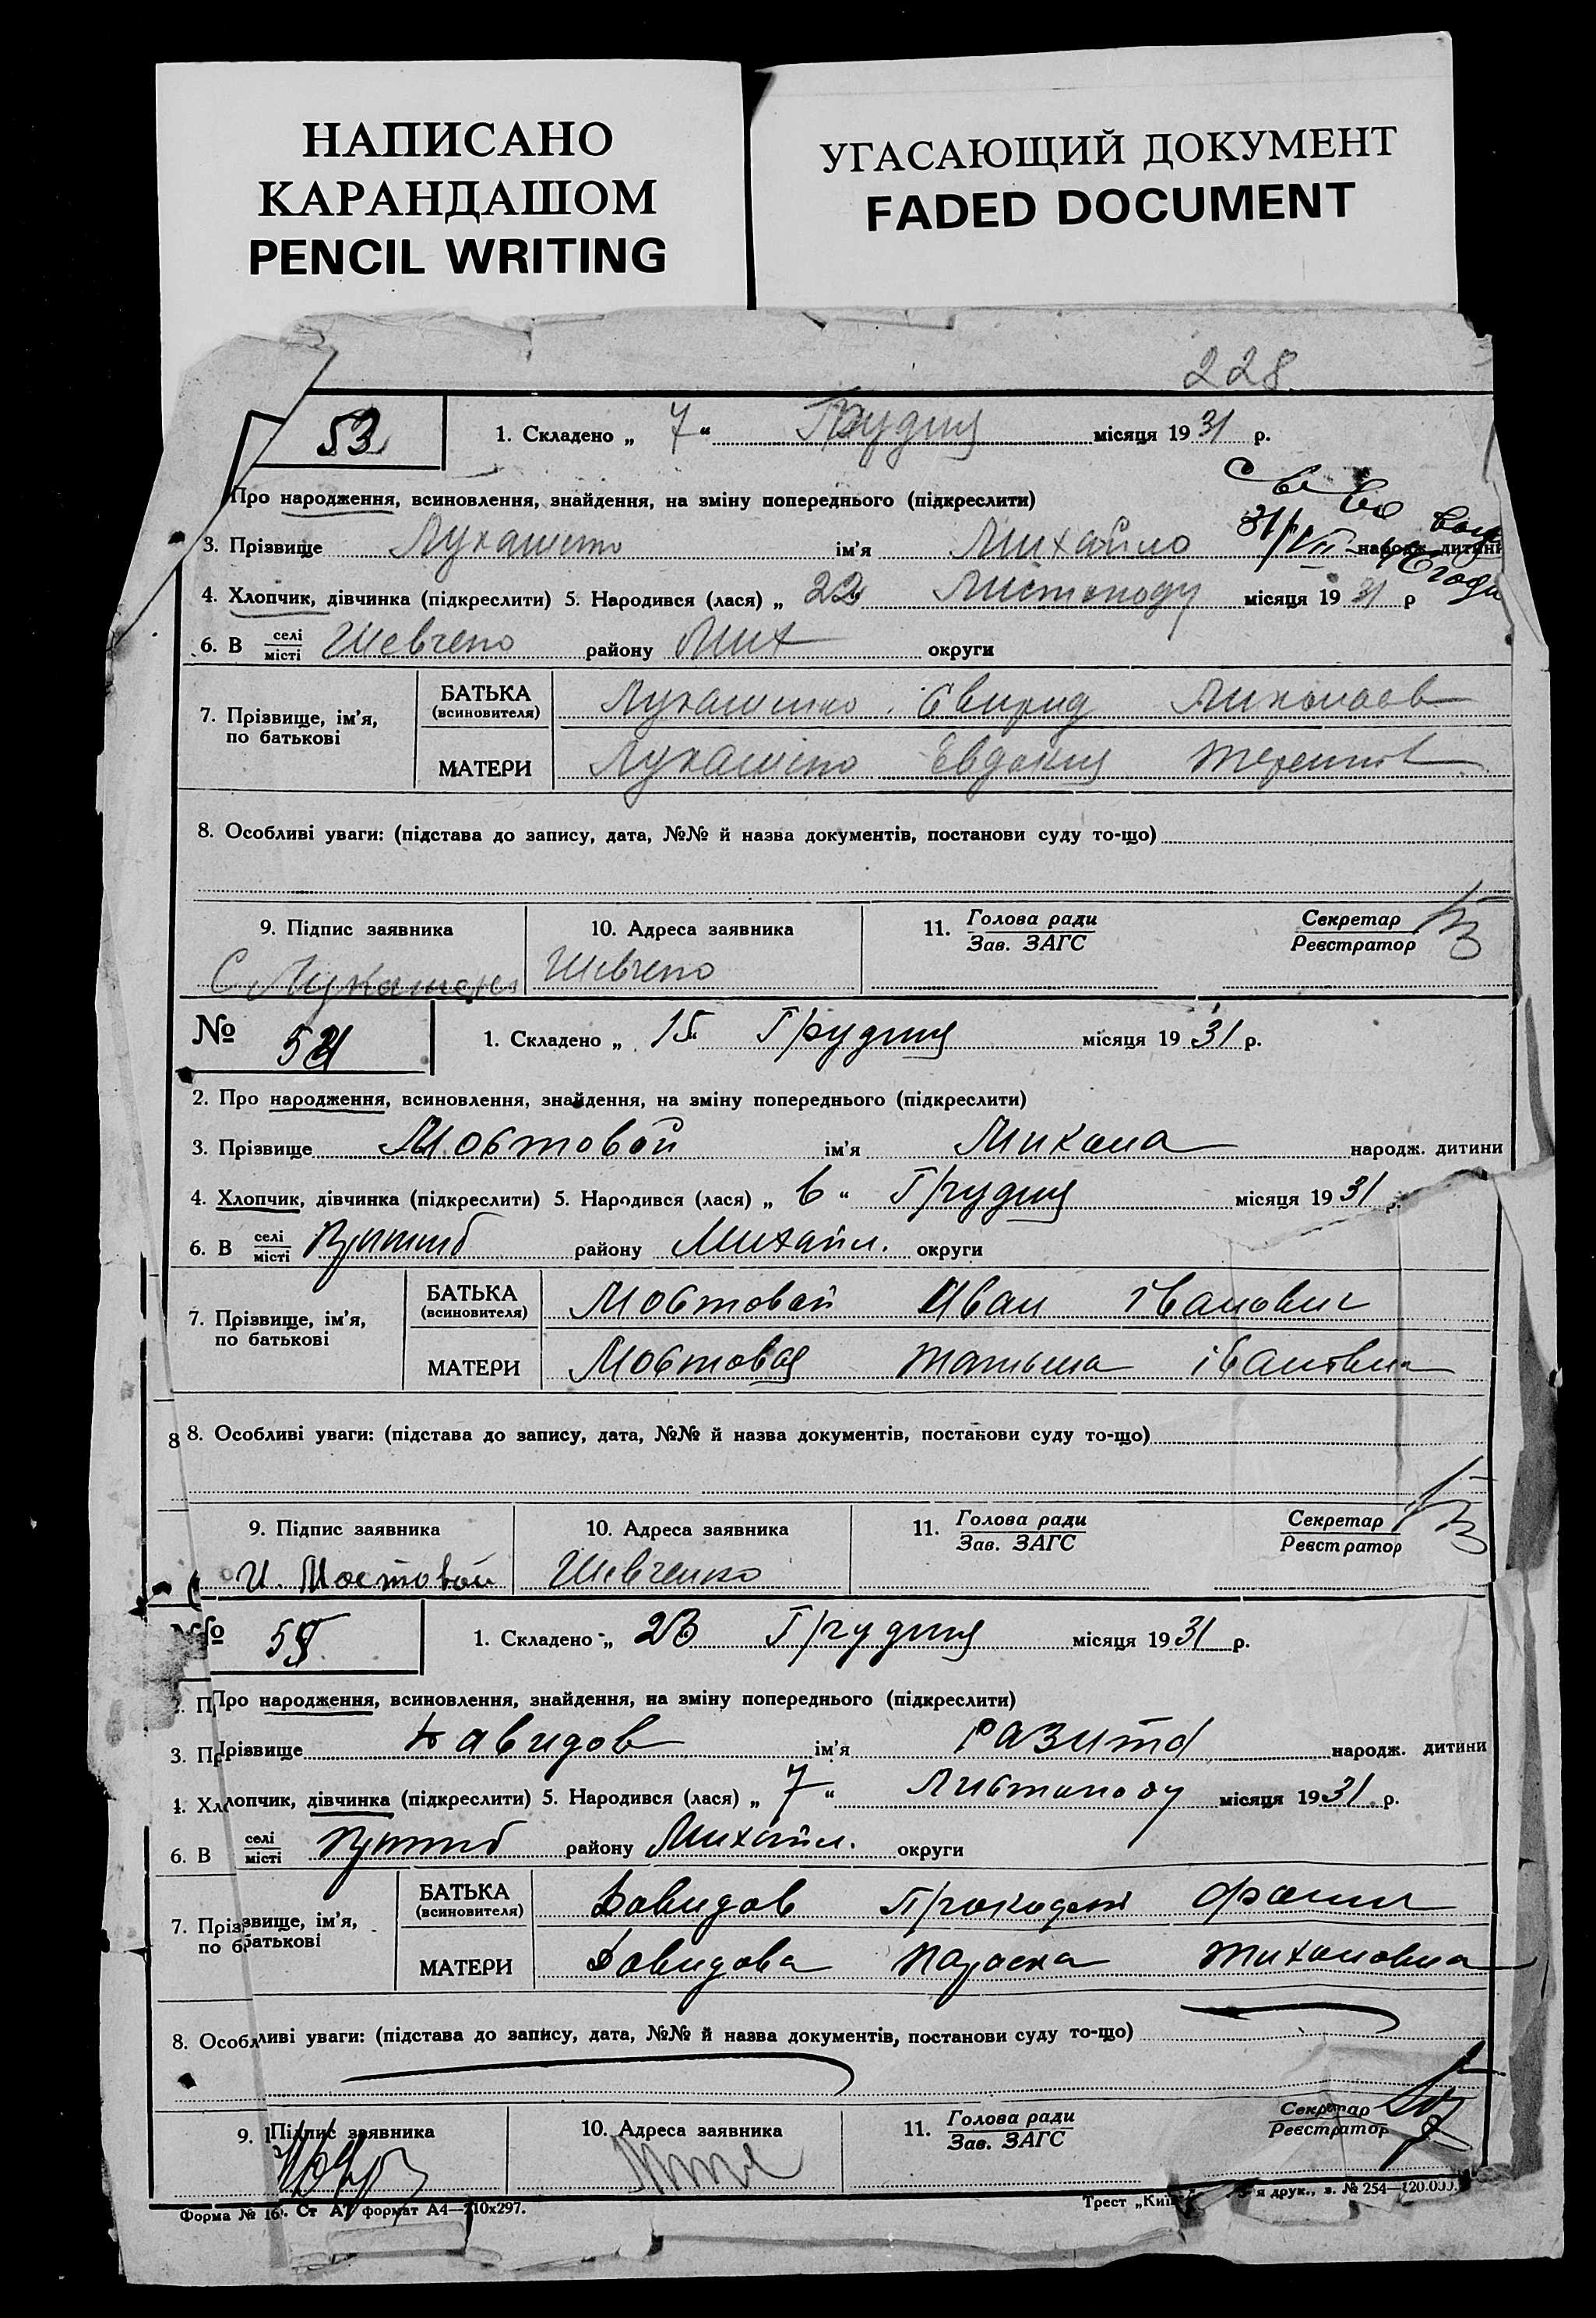 НАПИСАНО
КАРАНДАШОМ
PENCIL WRITING
УГАСАЮЩИЙ ДОКУМЕНТ
FADED DOCUMENT
228
53 1. Складено „ 7 “ Грудня місяця 1931 р.
Про народження, всиновлення, знайдення, на зміну попереднього (підкреслити)
3. Прізвище ім'я Михайло народж. дитини
4. Хлопчик, дівчинка (підкреслити) 5. Народився (лася) „ 22 Листопаду місяця 1931 р
6. В селі/місті Шевчено району Мих округи
7. Прізвище, ім'я, по батькові
БАТЬКА (всиновителя) Свирид
МАТЕРИ Евдокия
8. Особливі уваги: (підстава до запису, дата, №№ й назва документів, постанови суду то-що)
9. Підпис заявника 10. Адреса заявника 11. Голова ради/Зав. ЗАГС Секретар/Реєстратор
Шевчено
№ 54 1. Складено „ 15 “ Грудня місяця 1931 р.
2. Про народження, всиновлення, знайдення, на зміну попереднього (підкреслити)
3. Прізвище Мостовой ім'я Микола народж. дитини
4. Хлопчик, дівчинка (підкреслити) 5. Народився (лася) „ 6 “ Грудня місяця 1931 р.
6. В селі/місті району Михайл. округи
7. Прізвище, ім'я, по батькові
БАТЬКА (всиновителя) Мостовой Иван іванович
МАТЕРИ Мостовая Татьяна івановна
8 8. Особливі уваги: (підстава до запису, дата, №№ й назва документів, постанови суду то-що)
9. Підпис заявника 10. Адреса заявника 11. Голова ради/Зав. ЗАГС Секретар/Реєстратор
И. Мостовой Шевченко
№ 55 1. Складено „ 23 Грудня місяця 1931 р.
Про народження, всиновлення, знайдення, на зміну попереднього (підкреслити)
3. Прізвище Давидов ім'я народж. дитини
4. Хлопчик, дівчинка (підкреслити) 5. Народився (лася) „ 7 “ Листопаду місяця 1931 р.
6. В селі/місті району Михайл. округи
7. Прізвище, ім'я, по батькові
БАТЬКА (всиновителя) Давидов
МАТЕРИ Давидова Параска Тихоновна
8. Особливі уваги: (підстава до запису, дата, №№ й назва документів, постанови суду то-що)
9. Підпис заявника 10. Адреса заявника 11. Голова ради/Зав. ЗАГС Секретар/Реєстратор
Форма № 16. Ст А4 формат А4—210х297. Трест „Київ друк., з. № 254—120.000.